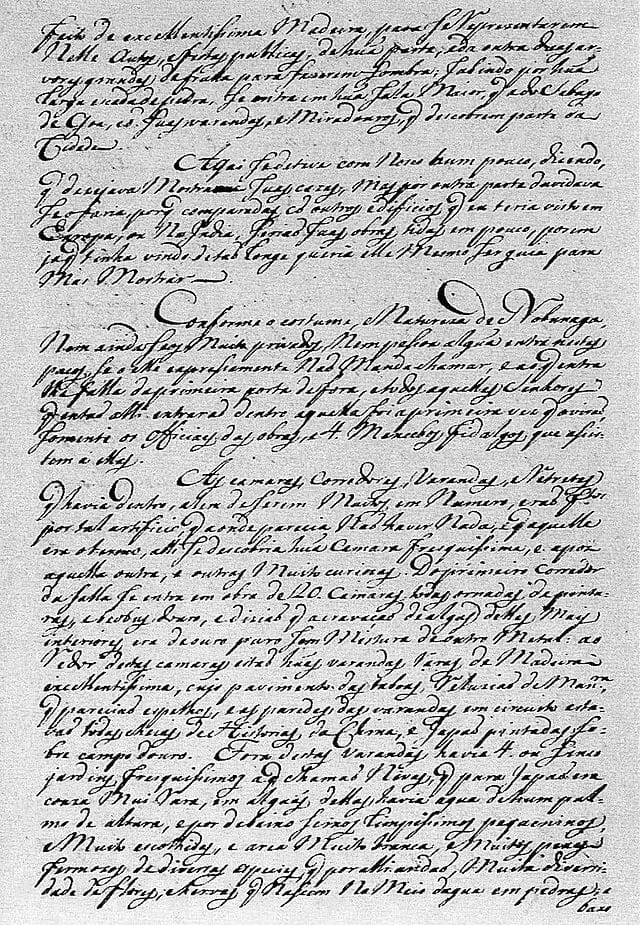 feito de excellentissima Madeira, para se Representarem
Nelle Autos, e festas publicas, de hũa parte, e da outra duas ar-
vores grandes de fruta para fazerem sombra; subindo por hũa
larga escada de pedra, se entra em hũa Salla Maior, q̃ a do Sabayo
de Goa, cõ suas varandas, e Miradouros, q̃ descobrem parte da
Cidade
Aqui se deteve com Nosco hum pouco, dizendo,
q̃ desejava Mostrarme suas cazas, Mas por outra parte duvidava
se o faria porq̃ comparadas cõ outros edificios q̃ eu teria visto em
Europa, ou Na India, seriaõ suas obras tidas em pouco, porem
ja q̃ tinha vindo de taõ longe queria elle Mesmo ser guia para
Mas Mostrar
Conforme o costume, e Natureza de Nobunaga,
Nem ainda seos Muito privados, Nem pessoa algũa entra nestes
paços, se o elle expressamente Naõ Manda chamar, e ao q̃ entra
lhe falla da primeira porta de fora, e todos aquelles Senhores
q̃ entaõ alli entraraõ dentro aquella foi a primeira vez q̃ o viraõ
somente os Officiaes das obras, e 4. Mancebos fidalgos que asis-
tem a elles.
As camaras, Corredores, Varandas, e Retretes
q̃ havia dentro, alem de serem Muitos em Numero, eraõ
por tal artificio q̃ aonde parecia Naõ haver Nada, e q̃ aquelle
era o termo, alli se descobria hũa Camara fresquissima, e apoz
aquella outra, e outras Muito curiozas. Do primeiro Corredor
da salla se entra em obra de 20. Camaras, todas ornadas de pintu-
ras, e biobus douro, e diziaõ q̃ a cravaçaõ de algũs delles, Mais
interiores era de ouro puro sem Mistura de outro Metal: ao
Redor destas camaras estaõ hũas varandas Raras, de Madeira
excellentissima, cujo pavimento das taboas, Reluziaõ de Manrᵃ
q̃ pareciaõ espelhos, e as paredes das varandas em circuito esta-
vaõ todas cheias de Historias, da China, e Japaõ pintadas, so-
bre campo douro. Fora destas varandas havia 4. ou Sinco
jardins, fresquissimos a q̃ chamaõ Nivas, q̃ para Japaõ era
couza Mui Rara, em algũs delles, havia agua de hum pal-
mo de altura, e por debaixo seixos limpissimos pequeninos,
e Muito escolhidos, e area Muito branca, e Muitos peixes
fermozos de diversas especies, q̃ por alli andaõ, Muita diversi-
dade de flores, e hervas q̃ Nascem No Meio dagua em pedras, e
baxo